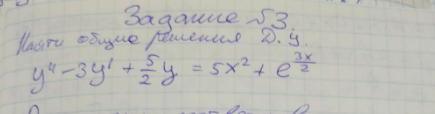 Задание №3.
Найти общие решения Д.У.
y'' - 3y' + 5/2 y = 5x² + e^(3x/2)